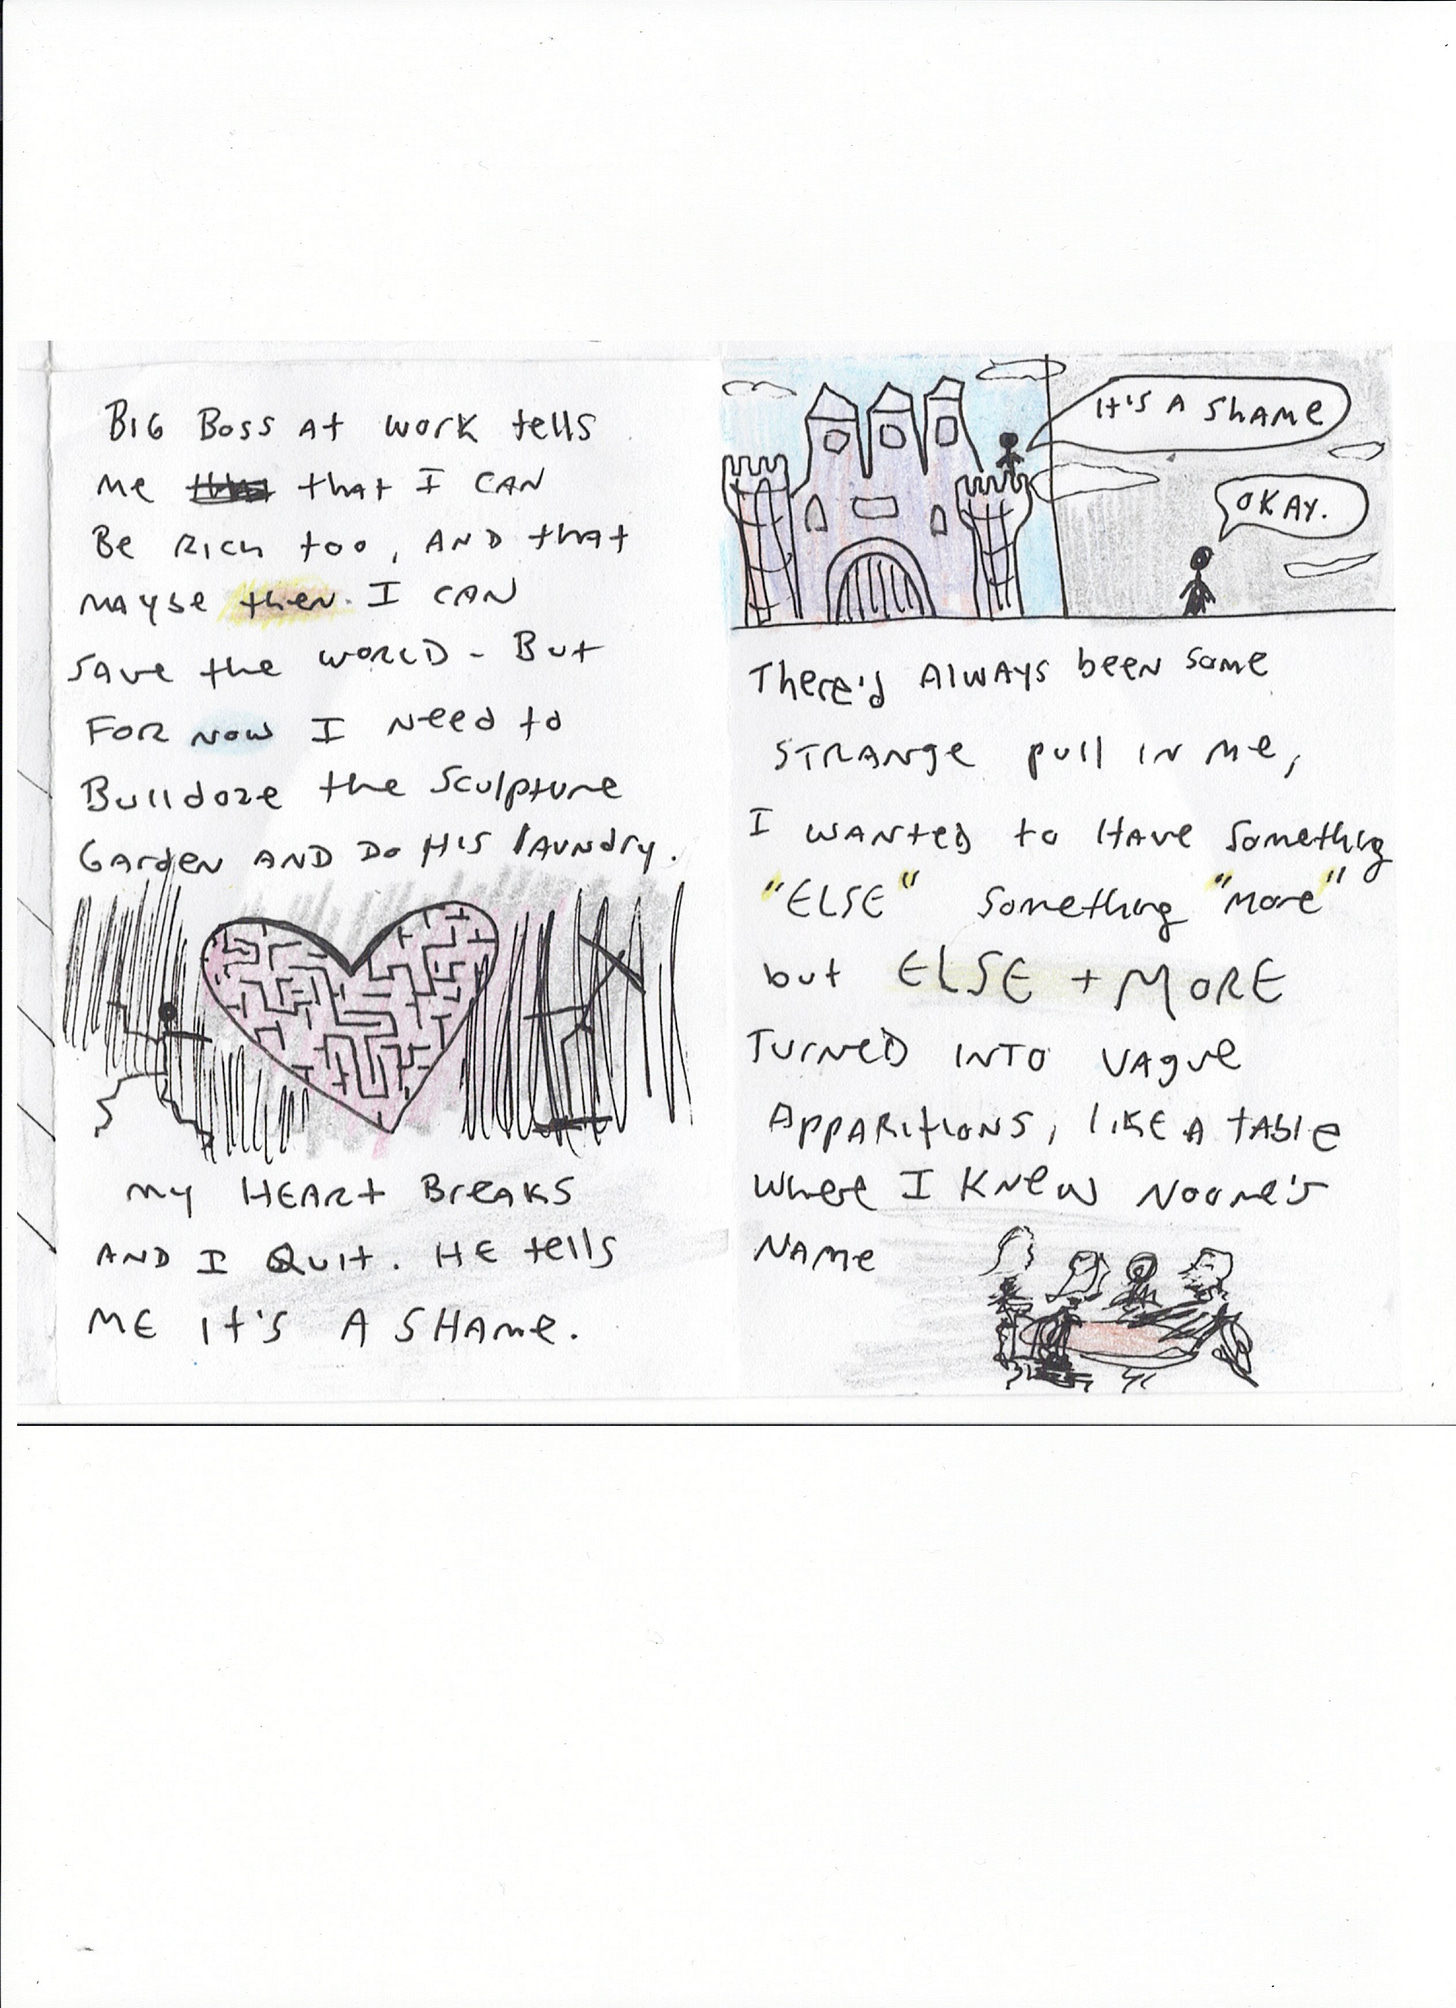 BIG BOSS At work tells
me that I CAN
Be Rich too, AND that
MAYBE then I CAN
SAVE the WORLD - But
FOR NOW I Need to
Bulldoze the Sculpture
Garden AND Do HIS laundry.
MY HEARt BreAKS
AND I Quit. HE tells
ME It'S A SHAme.
It'S A ShAME
OKAY.
There'd AlwAYs been some
STRANge pull IN me,
I WANTED to HAVE Something
"ELSE" Something "More"
but ELSE + MORE
TURNED INTO VAgue
APPARItIONS, LIKE A tABlE
Where I KNew Noone's
NAMe